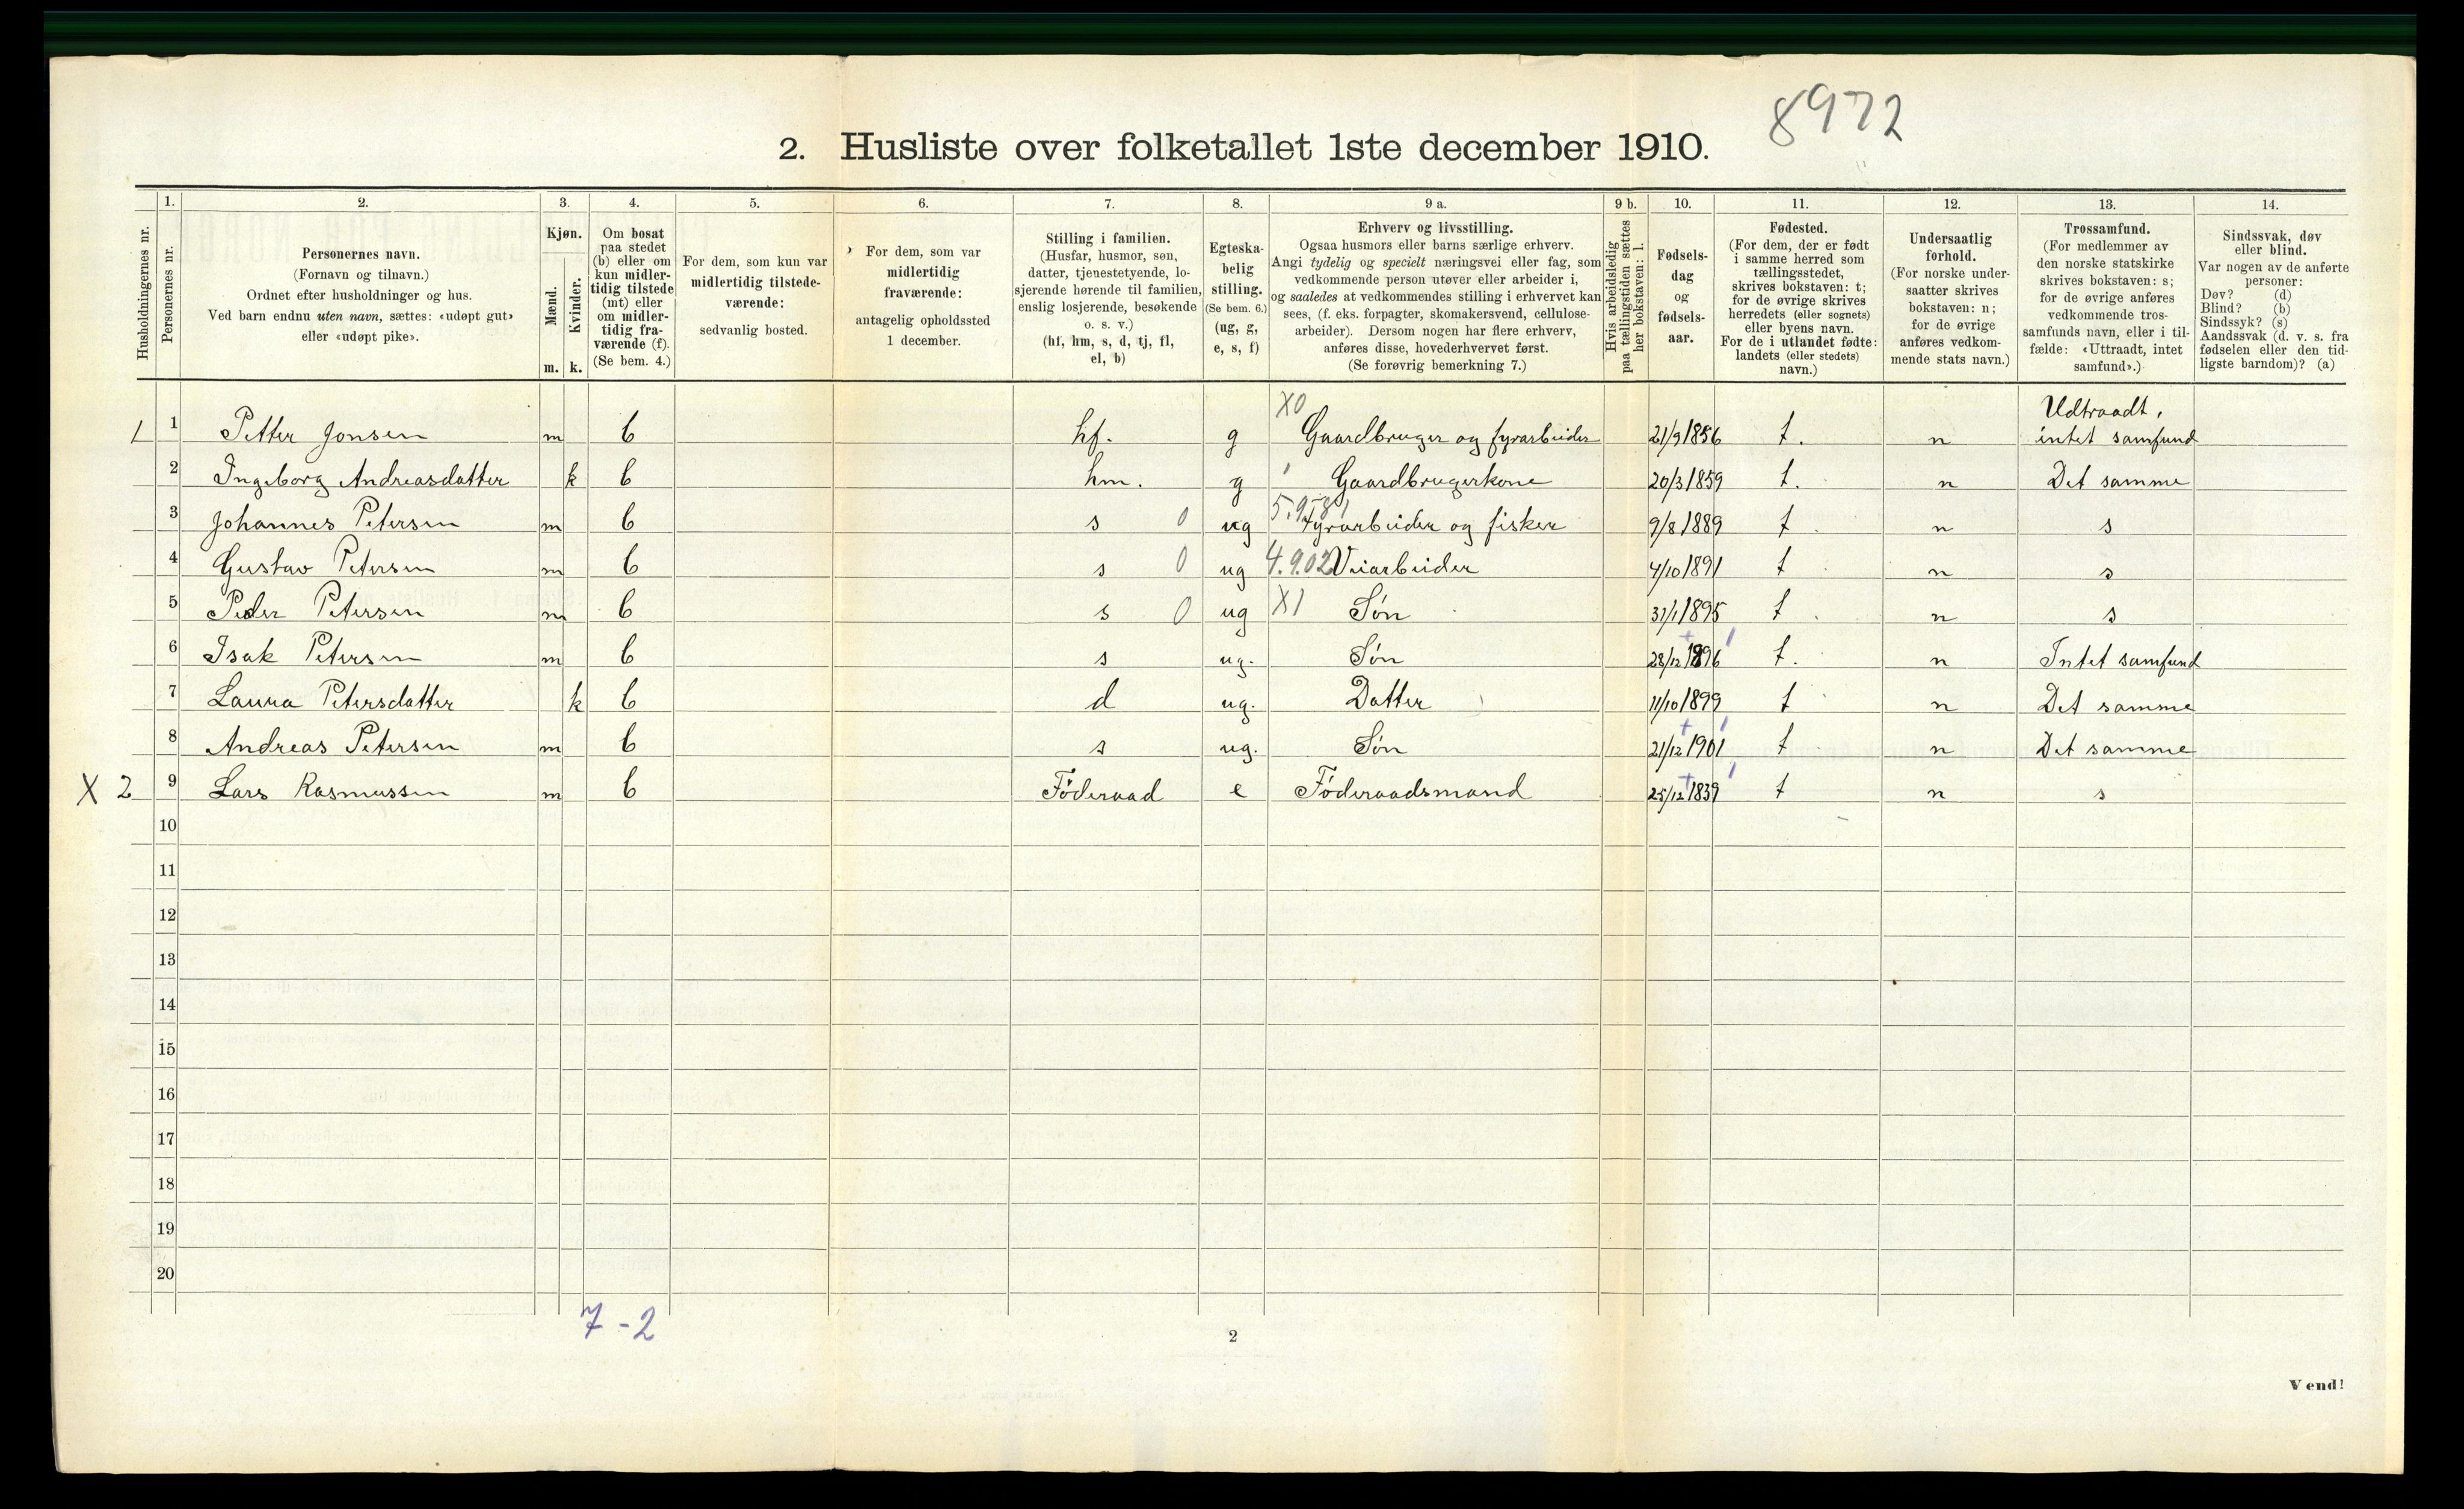 8972
2. Husliste over folketallet 1ste december 1910.
1. 2. 3. 4. 5. 6. 7. 8. 9 a. 9 b. 10. 11. 12. 13. 14.
Husholdningernes nr.
Personernes nr.
Personernes navn.
(Fornavn og tilnavn.)
Ordnet efter husholdninger og hus.
Ved barn endnu uten navn, sættes: «udøpt gut»
eller «udøpt pike».
Kjøn.
Mænd.
Kvinder.
m. k.
Om bosat
paa stedet
(b) eller om
kun midler-
tidig tilstede
(mt) eller
om midler-
tidig fra-
værende (f).
(Se bem. 4.)
For dem, som kun var
midlertidig tilstede-
værende:
sedvanlig bosted.
For dem, som var
midlertidig
fraværende:
antagelig opholdssted
1 december.
Stilling i familien.
(Husfar, husmor, søn,
datter, tjenestetyende, lo-
sjerende hørende til familien,
enslig losjerende, besøkende
o. s. v.)
(hf, hm, s, d, tj, fl,
el, b)
Egteska-
belig
stilling.
(Se bem. 6.)
(ug, g,
e, s, f)
Erhverv og livsstilling.
Ogsaa husmors eller barns særlige erhverv.
Angi tydelig og specielt næringsvei eller fag, som
vedkommende person utøver eller arbeider i,
og saaledes at vedkommendes stilling i erhvervet kan
sees, (f. eks. forpagter, skomakersvend, cellulose-
arbeider). Dersom nogen har flere erhverv,
anføres disse, hovederhvervet først.
(Se forøvrig bemerkning 7.)
Hvis arbeidsledig
paa tællingstiden sættes
her bokstaven: l.
Fødsels-
dag
og
fødsels-
aar.
Fødested.
(For dem, der er født
i samme herred som
tællingsstedet,
skrives bokstaven: t;
for de øvrige skrives
herredets (eller sognets)
eller byens navn.
For de i utlandet fødte:
landets (eller stedets)
navn.)
Undersaatlig
forhold.
(For norske under-
saatter skrives
bokstaven: n;
for de øvrige
anføres vedkom-
mende stats navn.)
Trossamfund.
(For medlemmer av
den norske statskirke
skrives bokstaven: s;
for de øvrige anføres
vedkommende tros-
samfunds navn, eller i til-
fælde: «Uttraadt, intet
samfund».)
Sindssvak, døv
eller blind.
Var nogen av de anførte
personer:
Døv? (d)
Blind? (b)
Sindssyk? (s)
Aandssvak (d. v. s. fra
fødselen eller den tid-
ligste barndom)? (a)
X0 Udtraadt,
1 1 Petter Jonsen m b hf. g Gaardbruger og fyrarbeider 21/9 1856 t. n intet samfund
2 Ingeborg Andreasdatter k b hm. g Gaardbrugerkone 20/3 1859 t. n Det samme
3 Johannes Petersen m b s 0 ug Fyrarbeider og fisker 9/8 1889 t n s
4 Gustav Petersen m b s 0 ug 4.9.02 Veiarbeider 4/10 1891 t n s
5 Peder Petersen m b s 0 ug X1 Søn 31/1 1895 t n s
6 Isak Petersen m b s ug. Søn 28/12 1896 t. n Intet samfund
7 Laura Petersdatter k b d ug. Datter 11/10 1899 t n Det samme
8 Andreas Petersen m b s ug. Søn 21/12 1901 t n Det samme
X 2 9 Lars Rasmussen m b Föderaad e Föderaadsmand 25/12 1839 t n s
10
11
12
13
14
15
16
17
18
19
20
7 - 2
2
Vend!